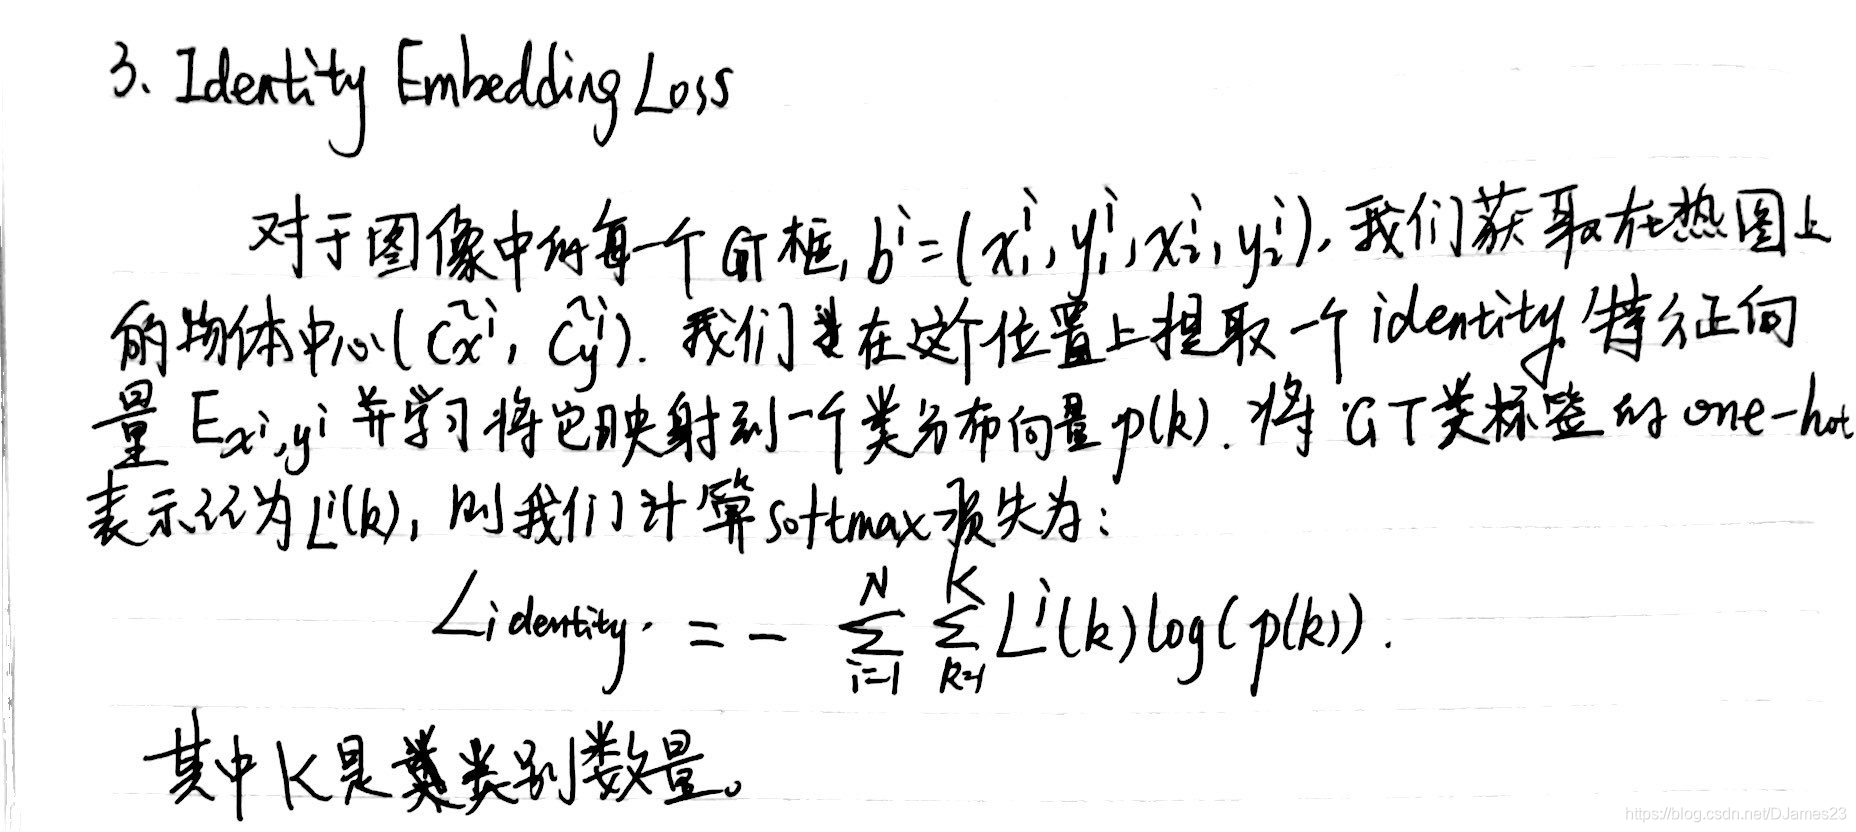 3、Identity Embedding Loss
对于图像中的每一个GT框, bⁱ=(x₁ⁱ, y₁ⁱ, x₂ⁱ, y₂ⁱ), 我们获取在热图上
的物体中心(c̃ₓⁱ, c̃ᵧⁱ). 我们在这个位置上提取一个identity特征向
量 E_{xⁱ,yⁱ} 并学习将它映射到一个类分布向量p(k). 将GT类标签的one-hot
表示记为Lⁱ(k), 则我们计算softmax损失为:
L_{identity} = - ∑_{i=1}^{N} ∑_{k=1}^{K} Lⁱ(k)log(p(k)).
其中K是类别数量。
https://blog.csdn.net/DJames23